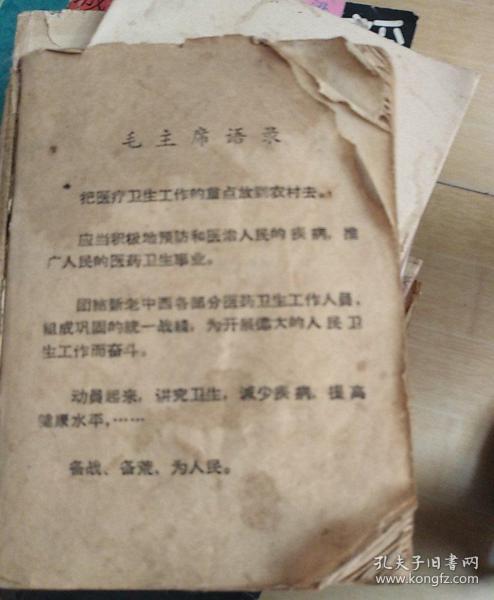 毛主席语录
把医疗卫生工作的重点放到农村去。
应当积极地预防和医治人民的疾病，推
广人民的医药卫生事业。
团结新老中西各部分医药卫生工作人员，
组成巩固的统一战线，为开展伟大的人民卫
生工作而奋斗。
动员起来，讲究卫生，减少疾病，提高
健康水平，……
备战、备荒、为人民。
孔夫子旧书网
www.kongfz.com